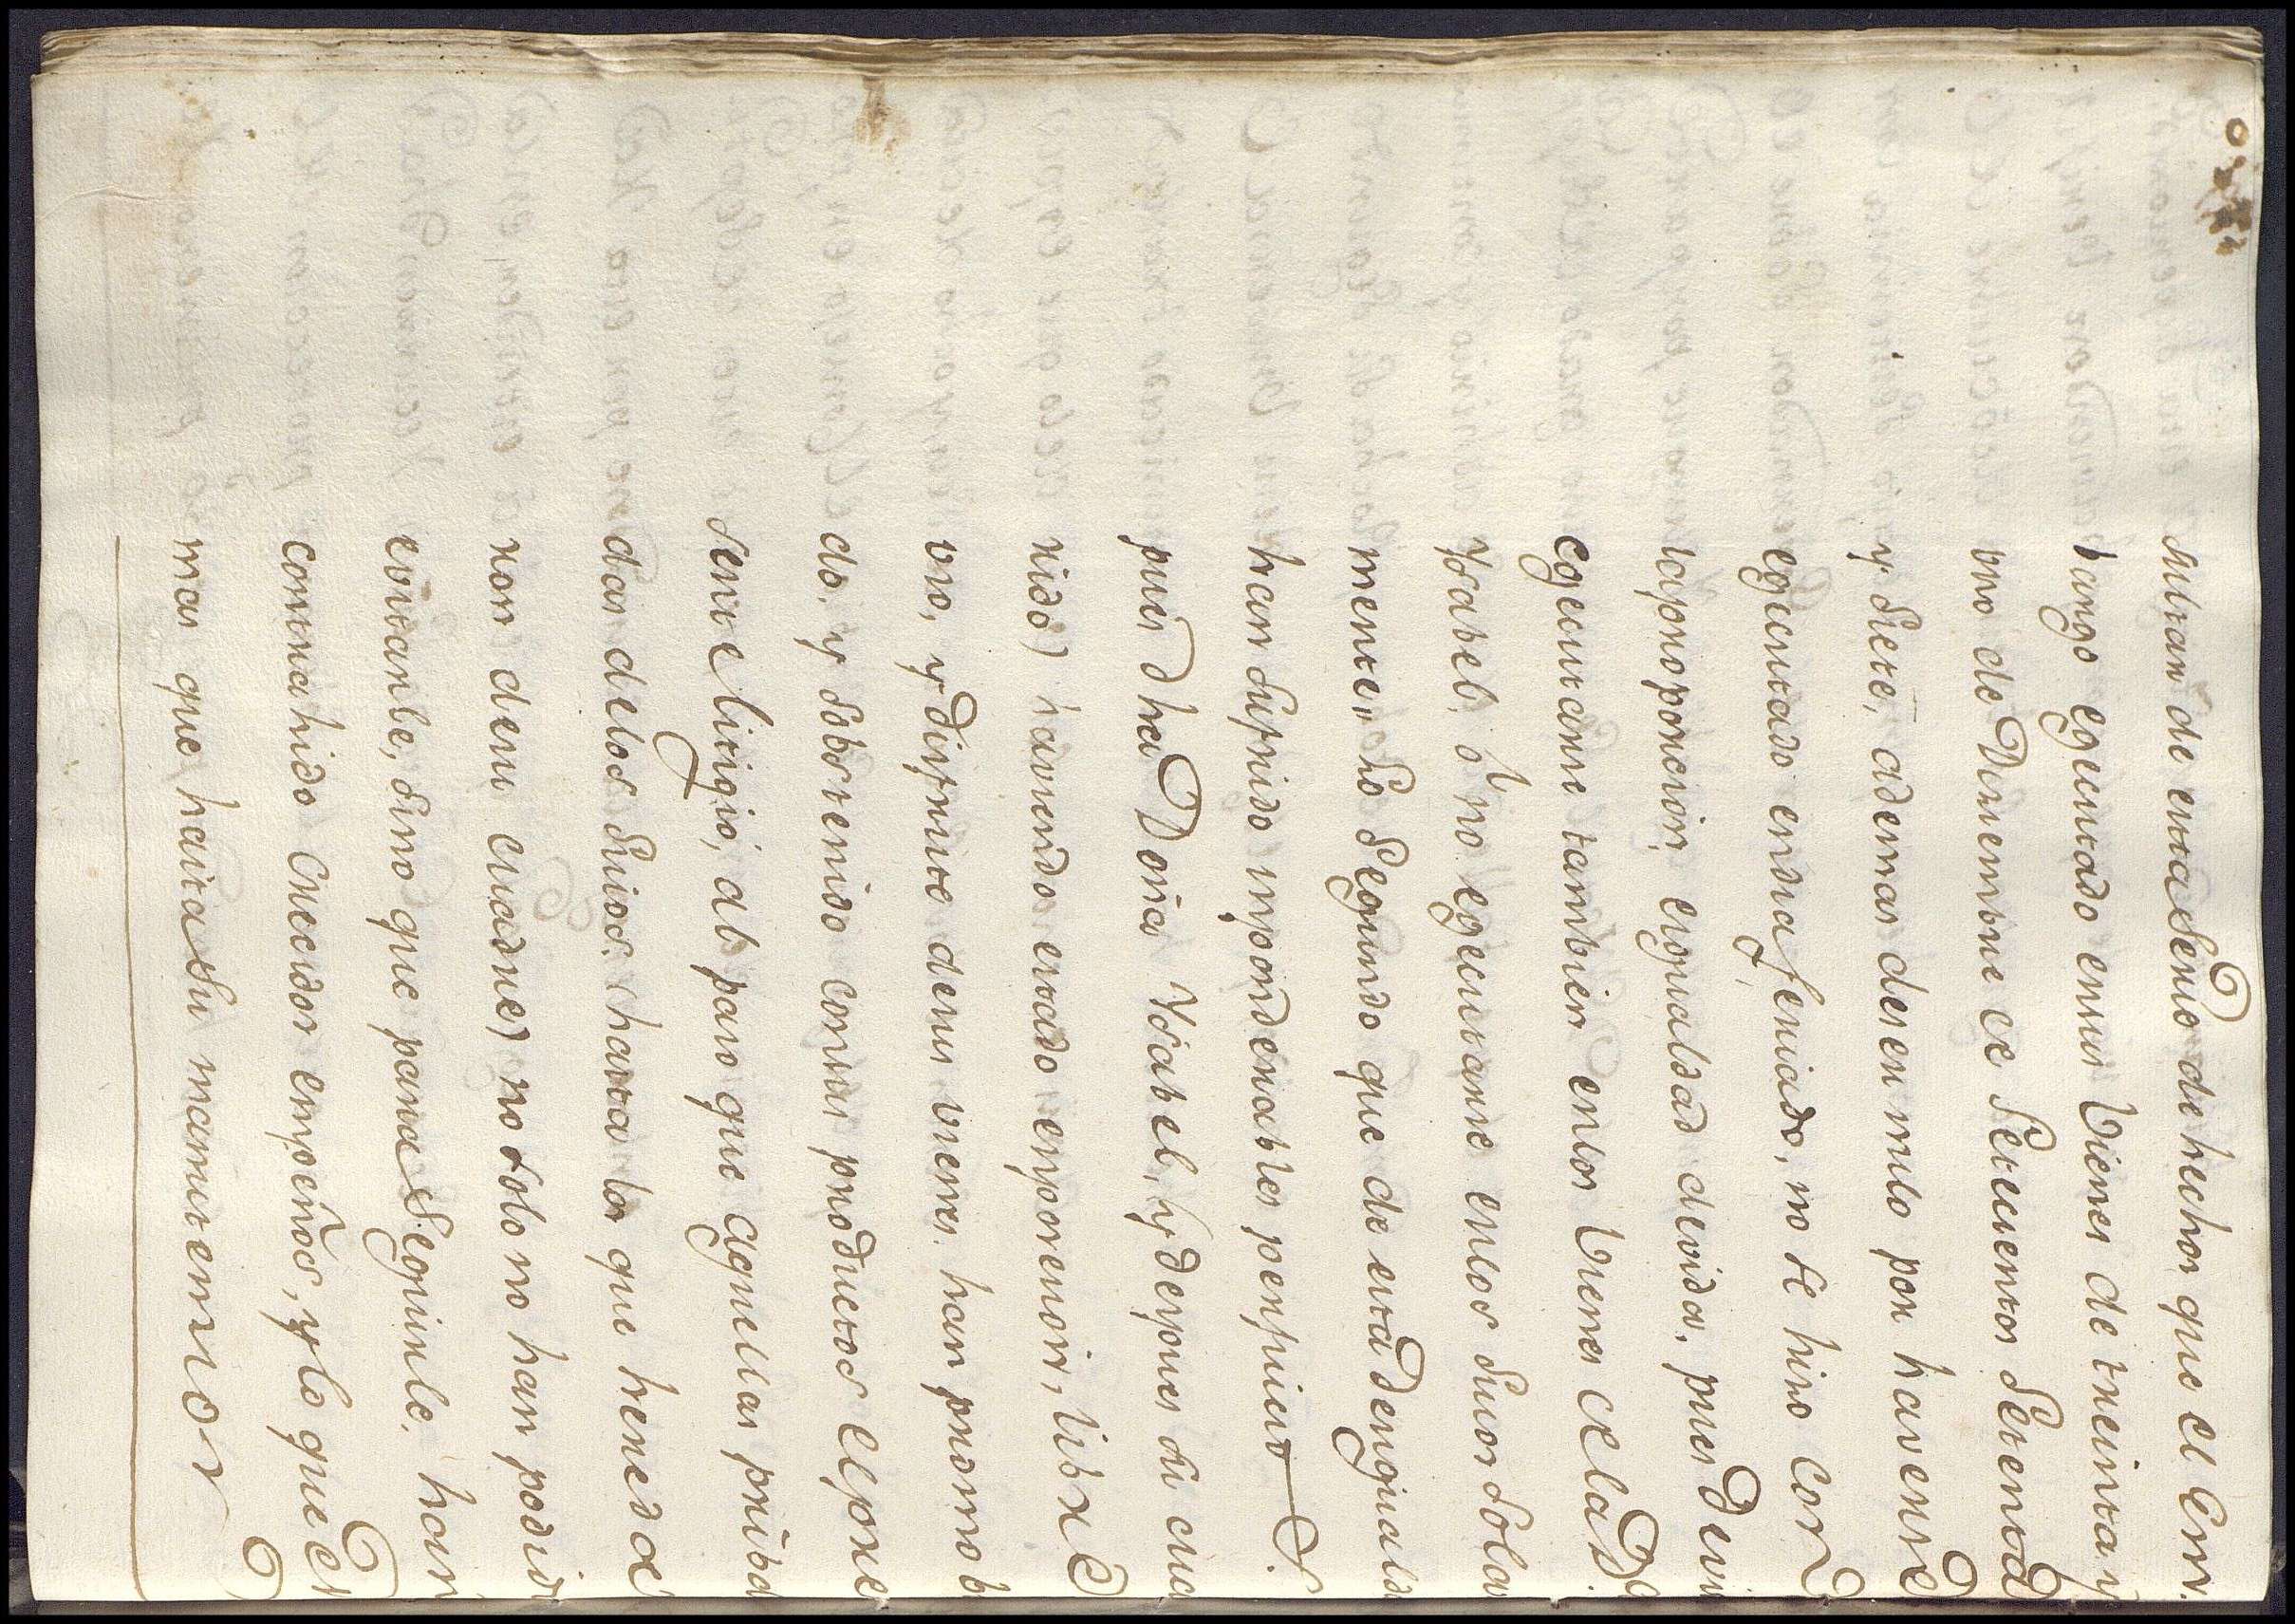 sultan de esta Serie de hechos que el Em
bargo egecutado en sus Vienes de treinta y
uno de Diciembre de Setecientos Setenta
y Siete, ademas de ser nulo por haverse
egecutado en dia feriado, no se hizo con
la proporcion, e igualdad devida, pues devi
egecutarse tambien en los Vienes de la D.ª
Ysabel, ó no egecutarse en los Suios Sola
mente: Lo Segundo que de esta desiguald
han sufrido imponderables perjuicios
pues dha Doña Ysabel, (y despues su cua
rido) haviendo estado en posesion, libre
uso, y disfrute de sus vienes. han promob
do. y Sobstenido con sus productos el pre
sente litigio, al paso que aquellas priba
das delos Suios. (hasta los que hereda
ron de su Madre) no solo no han podid
evitarle, sino que para Seguirle. han
contrahido Crecidos empeños, y lo que es
mas que hasta su manutencion